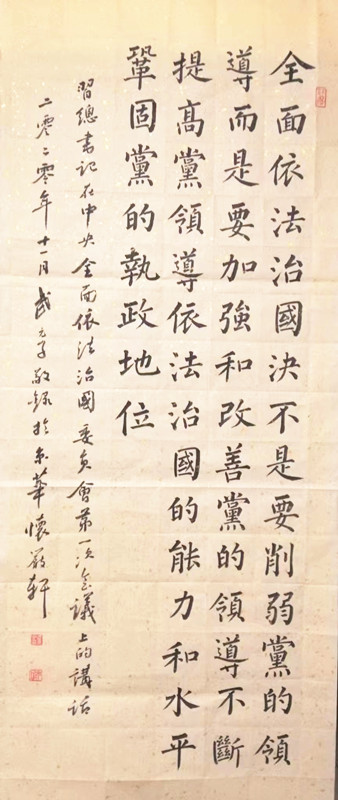 全面依法治國決不是要削弱黨的領
導而是要加強和改善黨的領導不斷
提高黨領導依法治國的能力和水平
鞏固黨的執政地位
習總書記在中央全面依法治國委員會第一次會議上的講話
二零二零年十一月武元子敬錄於京華懷嚴軒